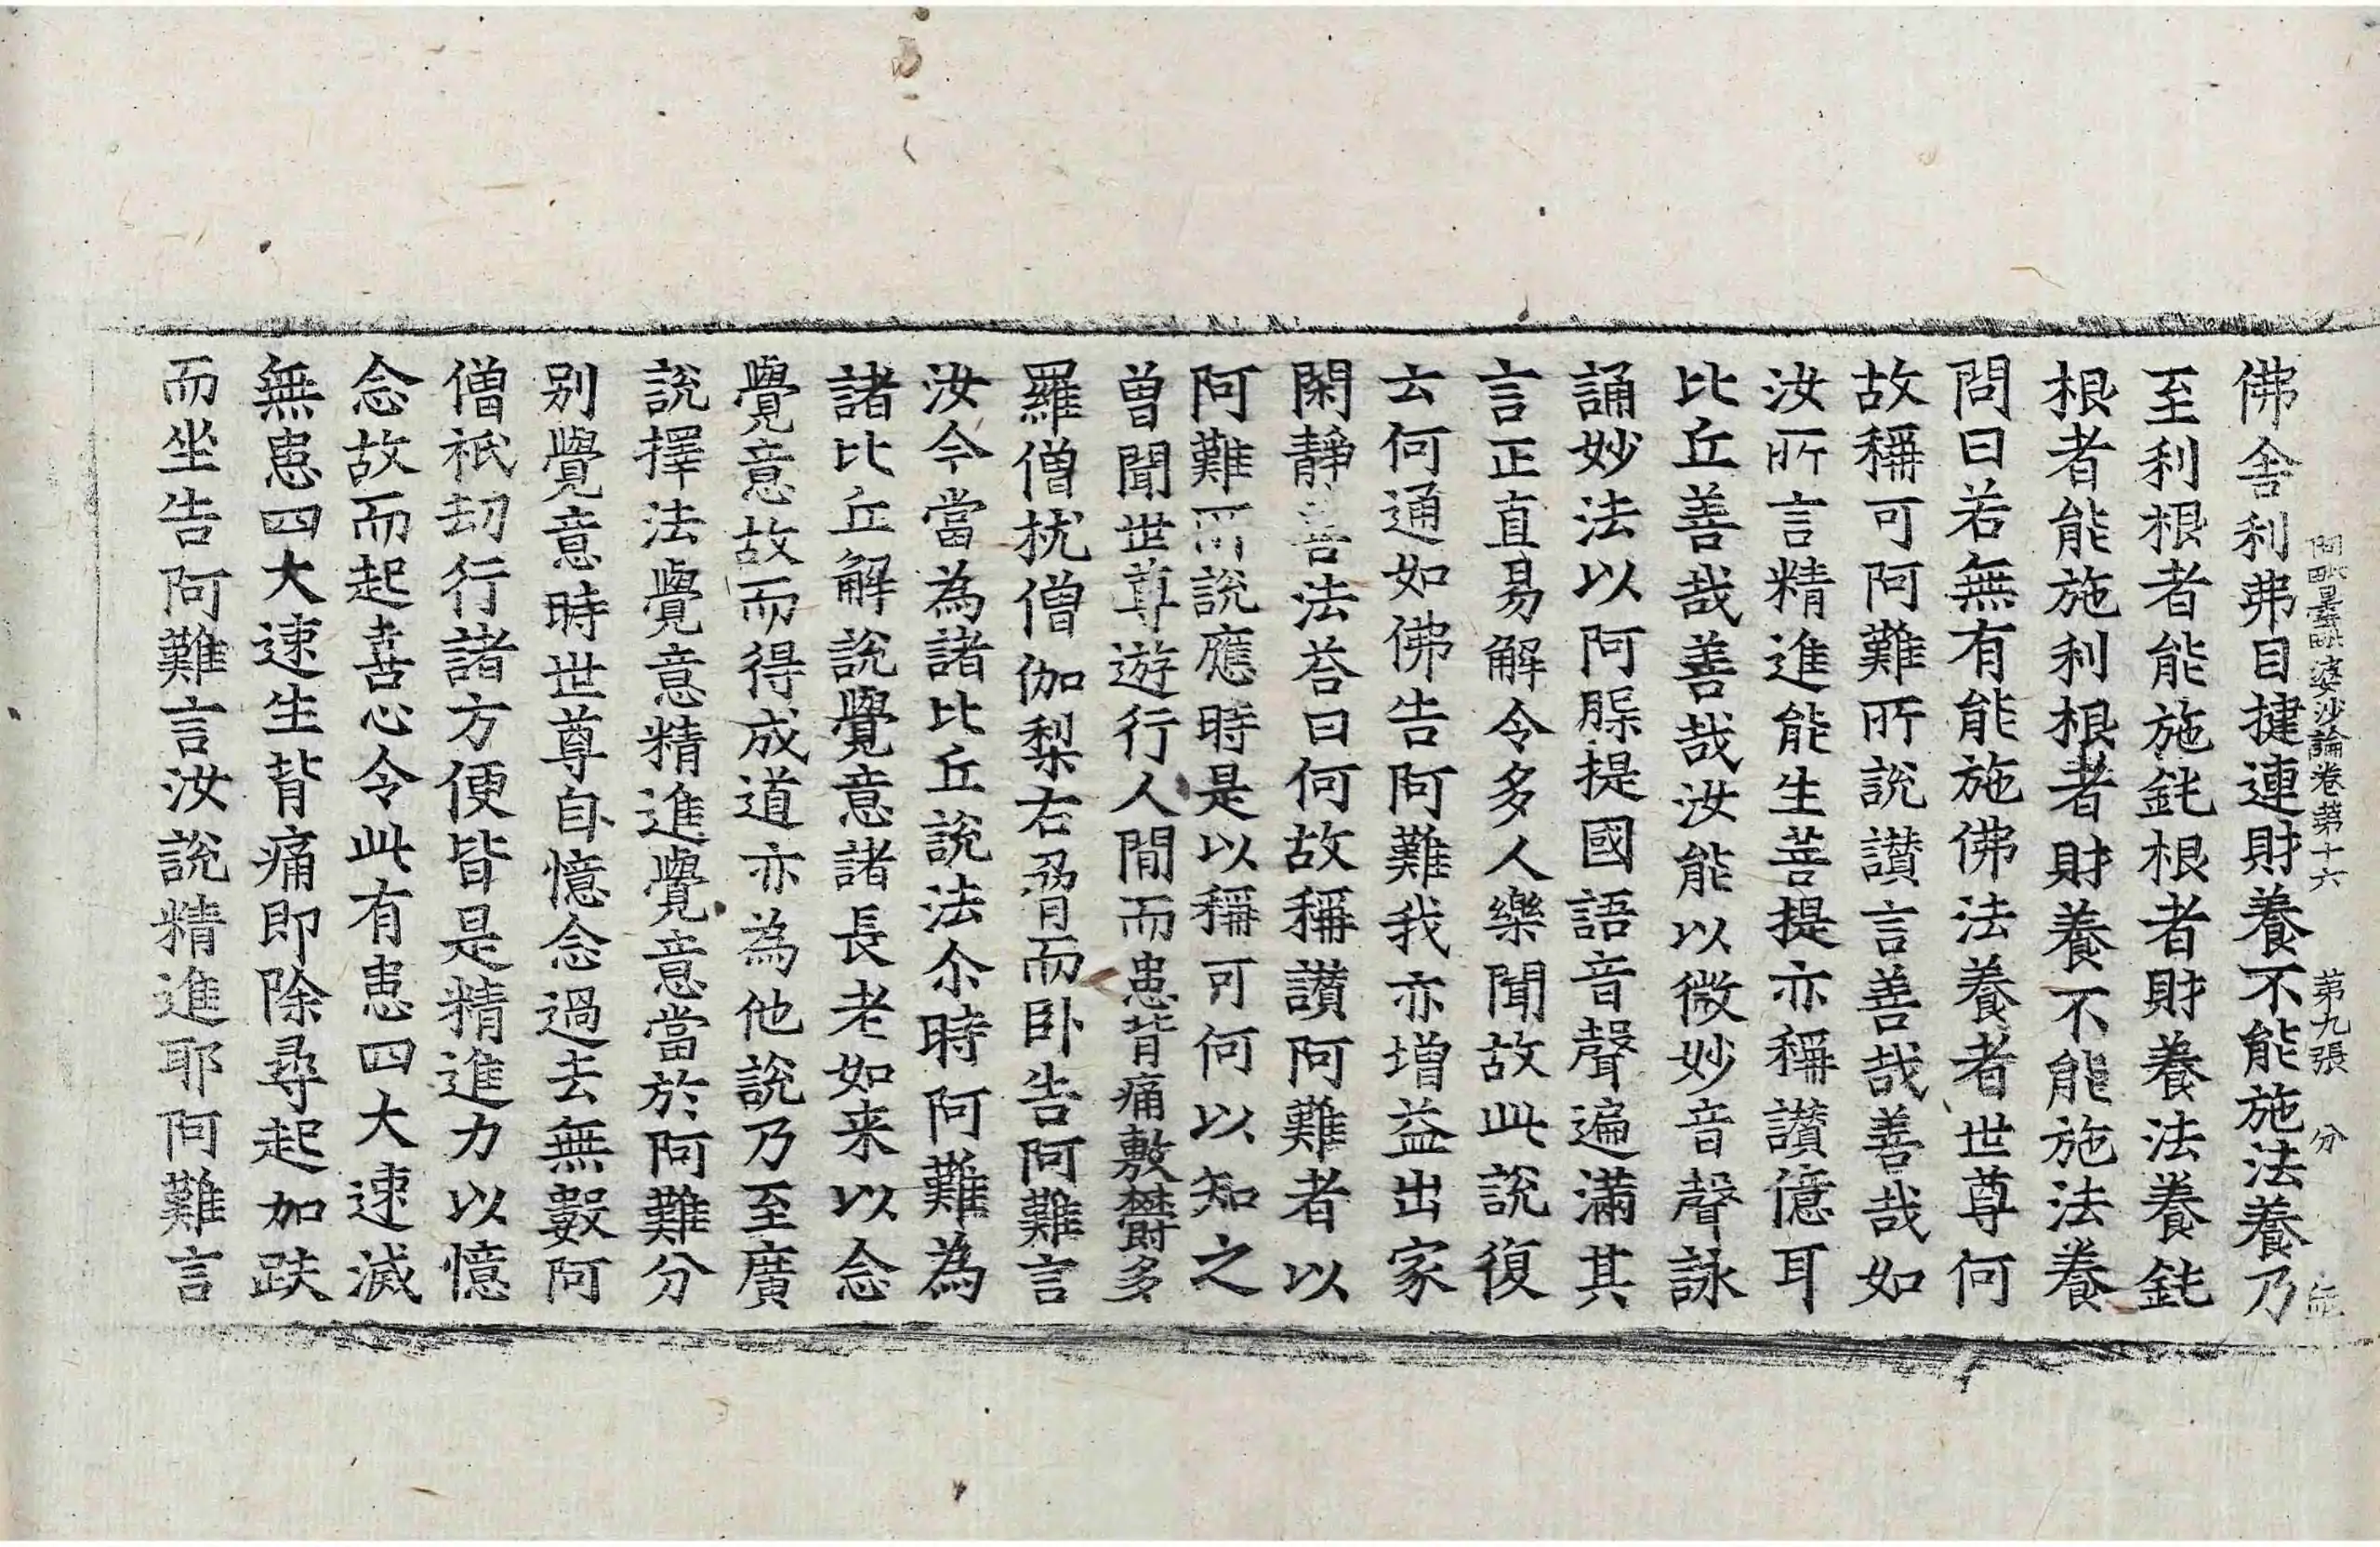 阿毗曇毗婆沙論卷第十六 第九張 分
佛舍利弗目揵連財養不能施法養乃
至利根者能施鈍根者財養法養鈍
根者能施利根者財養不能施法養
問曰若無有能施佛法養者世尊何
故稱可阿難所說讃言善哉善哉如
汝所言精進能生菩提亦稱讃億耳
比丘善哉善哉汝能以微妙音聲詠
誦妙法以阿䏢提國語音聲遍滿其
言正直易解令多人樂聞故此說復
云何通如佛告阿難我亦增益出家
閑靜善法荅曰何故稱讃阿難者以
阿難所說應時是以稱可何以知之
曾聞世尊遊行人間而患背痛敷欝多
羅僧枕僧伽梨右脅而卧告阿難言
汝今當為諸比丘說法尒時阿難為
諸比丘解說覺意諸長老如来以念
覺意故而得成道亦為他說乃至廣
說擇法覺意精進覺意當於阿難分
別覺意時世尊自憶念過去無數阿
僧祇刧行諸方便皆是精進力以憶
念故而起喜心令此有患四大速滅
無患四大速生背痛即除尋起加趺
而坐告阿難言汝說精進耶阿難言